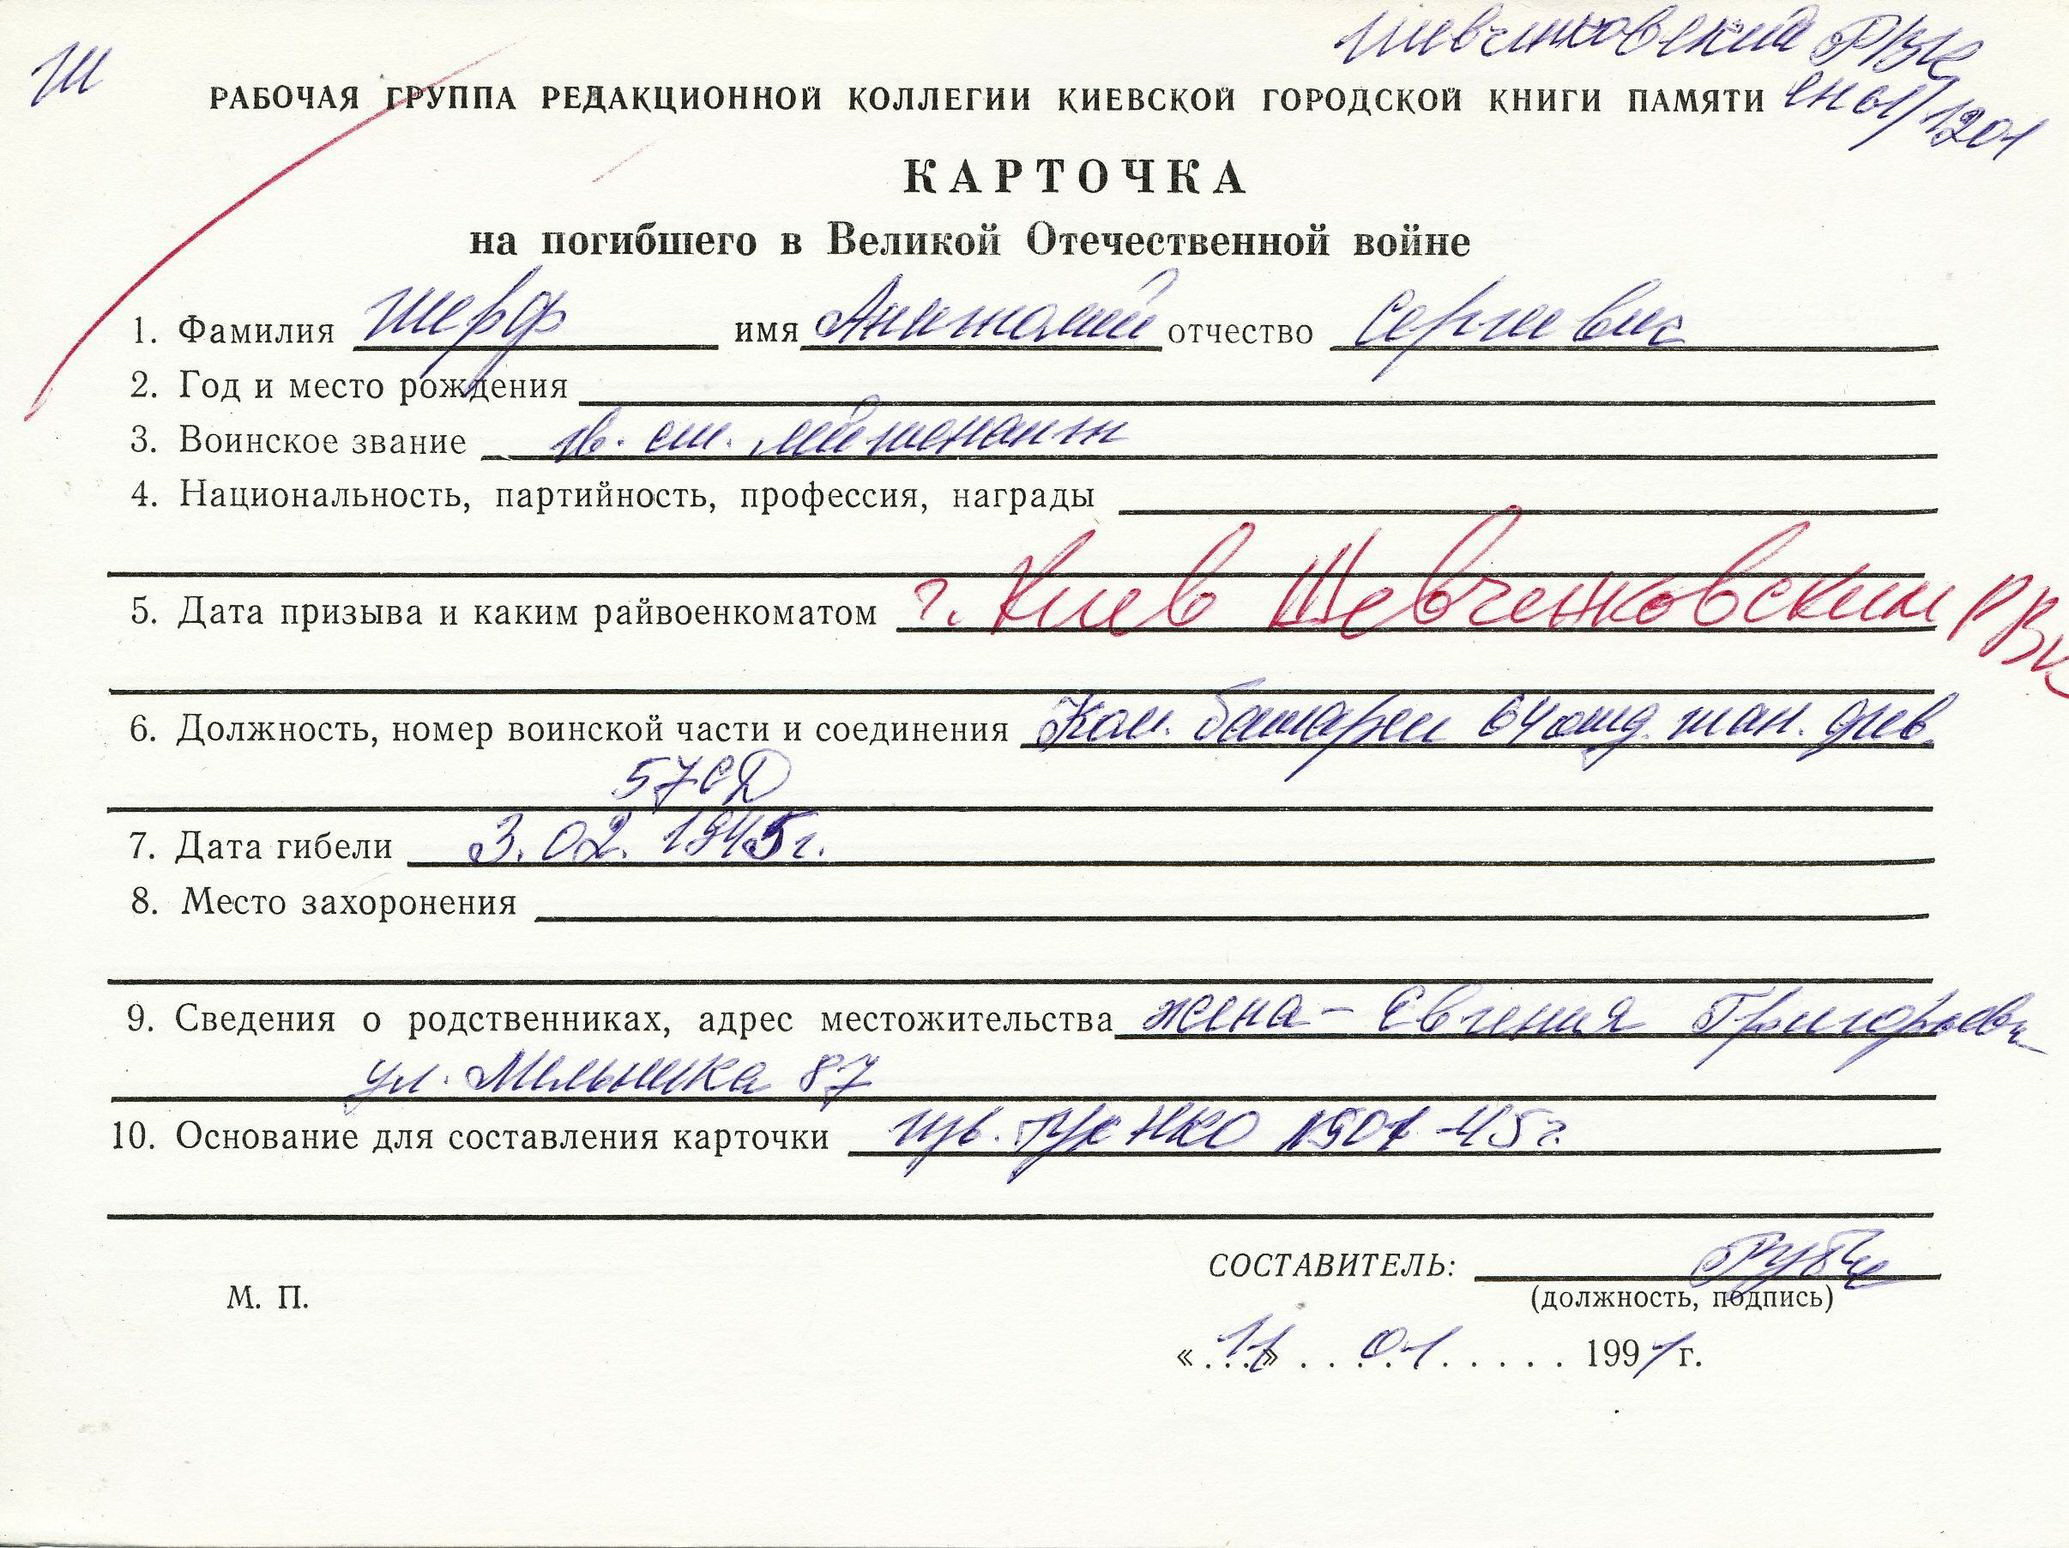 Ш
Шевченковский РВК
РАБОЧАЯ ГРУППА РЕДАКЦИОННОЙ КОЛЛЕГИИ КИЕВСКОЙ ГОРОДСКОЙ КНИГИ ПАМЯТИ
1201
КАРТОЧКА
на погибшего в Великой Отечественной войне
1. Фамилия Шерф имя Анатолий отчество Сергеевич
2. Год и место рождения
3. Воинское звание гв. ст. лейтенант
4. Национальность, партийность, профессия, награды
5. Дата призыва и каким райвоенкоматом г. Киев Шевченковским РВК
6. Должность, номер воинской части и соединения Ком. батареи 64 отд. див.
57 СД
7. Дата гибели 3.02.1945г.
8. Место захоронения
9. Сведения о родственниках, адрес местожительства жена - Евгения Григорьевна
ул. Мельника 87
10. Основание для составления карточки изв. ГУК НКО 45г.
СОСТАВИТЕЛЬ:
М. П.
(должность, подпись)
«11» 01 1991 г.